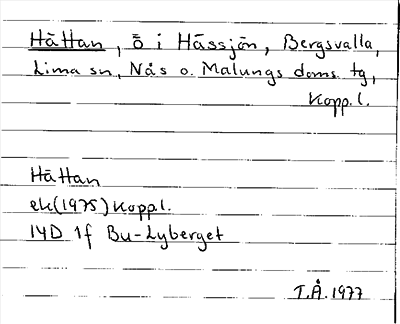 Håttan, ö i Hässjön, Bergsvalla,
Lima sn, Nås o. Malungs doms. tg,
Kopp.l.
Håttan
ek(1975) Kopp.l.
14D 1f Bu-Lyberget
T.Å. 1977